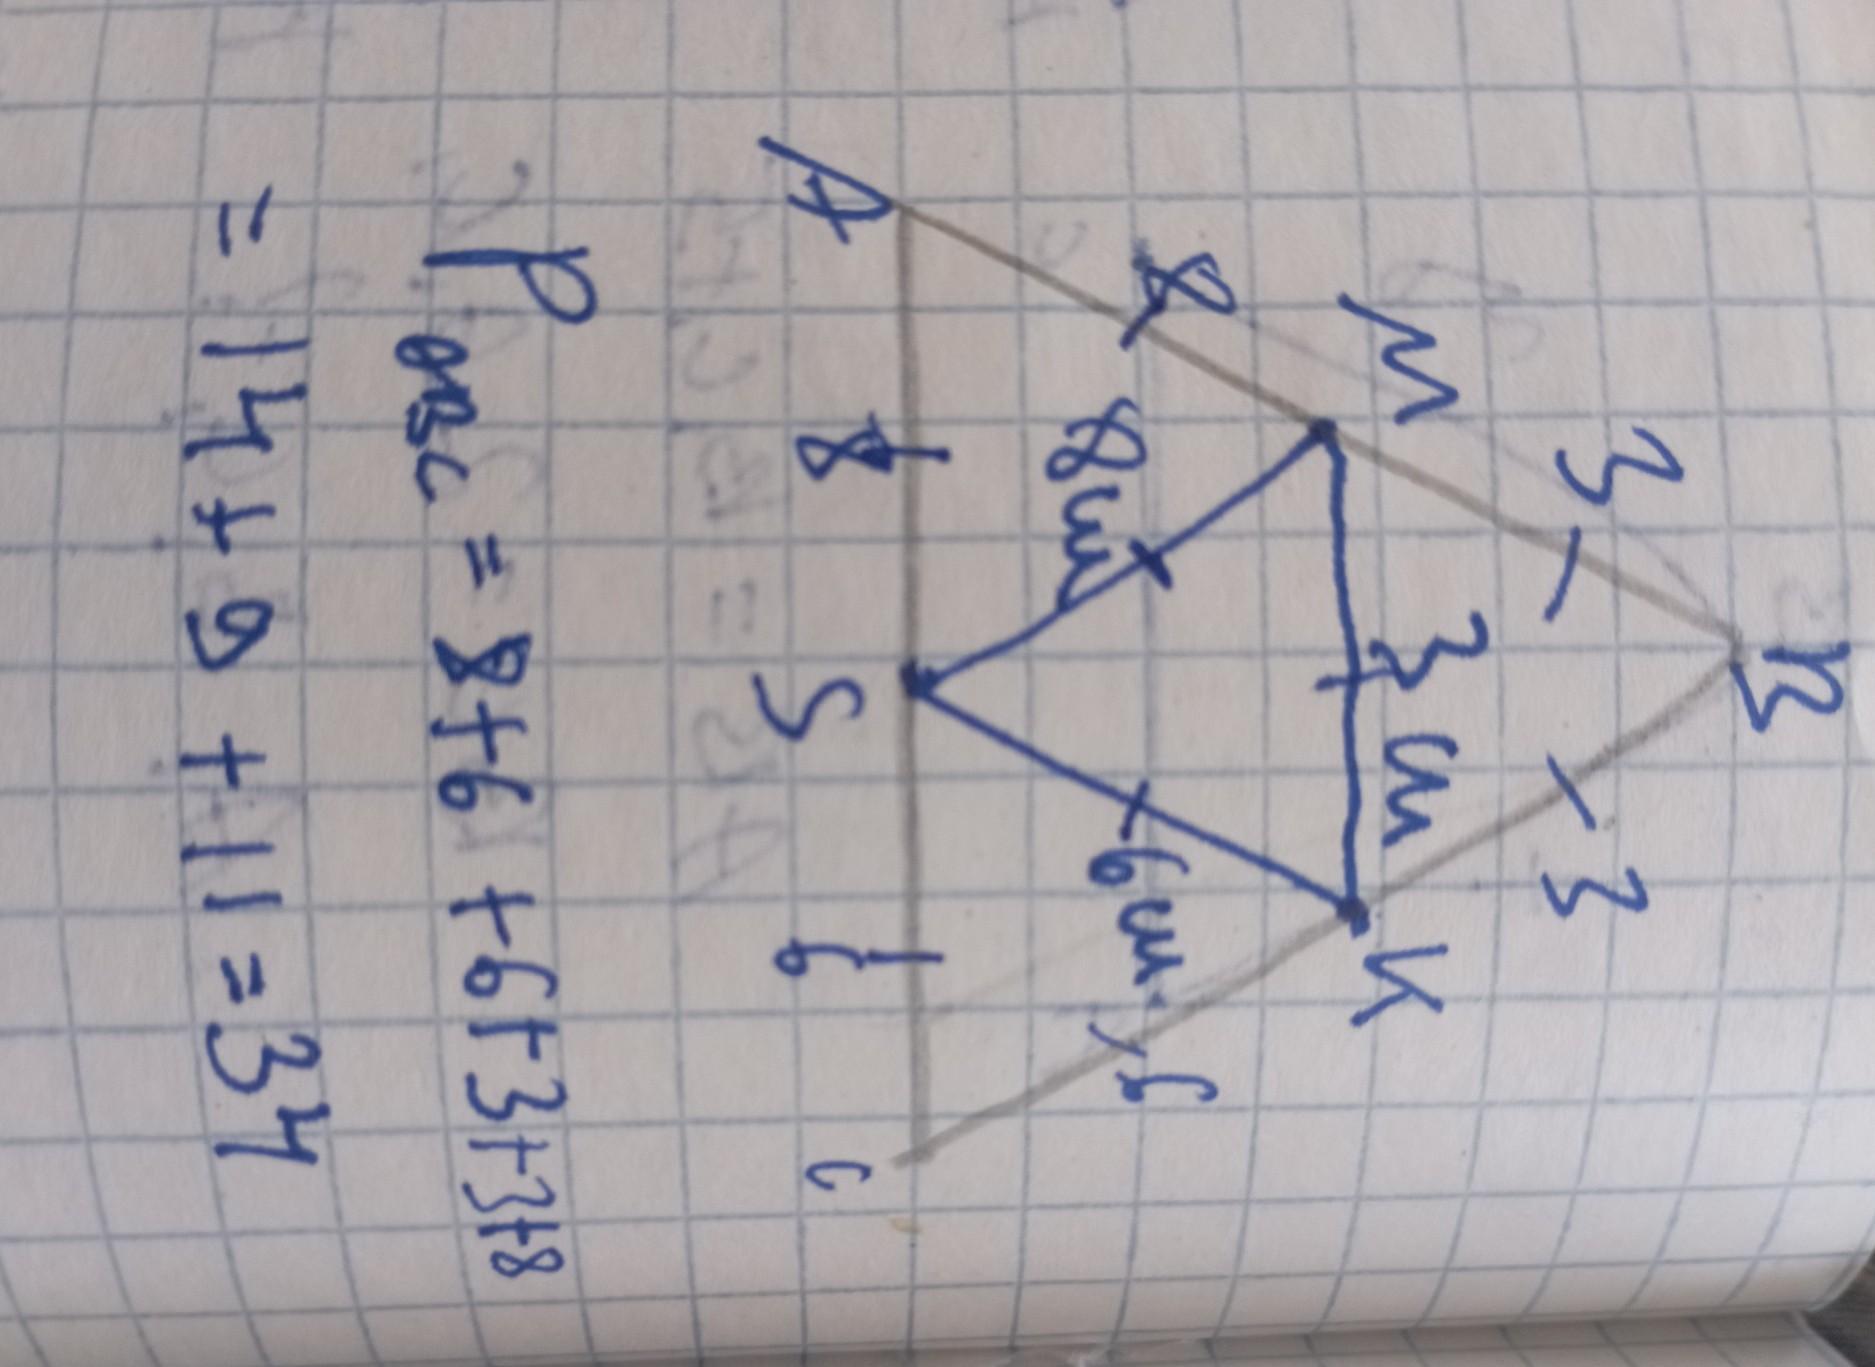 B
3
3
M
3 см
K
8
8см
6см
6
A
8
S
6
C
= 8+6+6+3+3+8
= 14+9+11=34